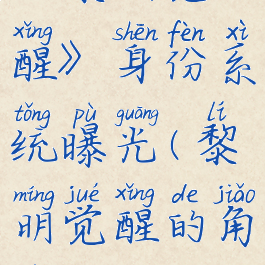 xǐng shēn fèn xì
醒》 身份系
tǒng pù guāng lí
统曝光(黎
míng jué xǐng de jiǎo
明觉醒的角